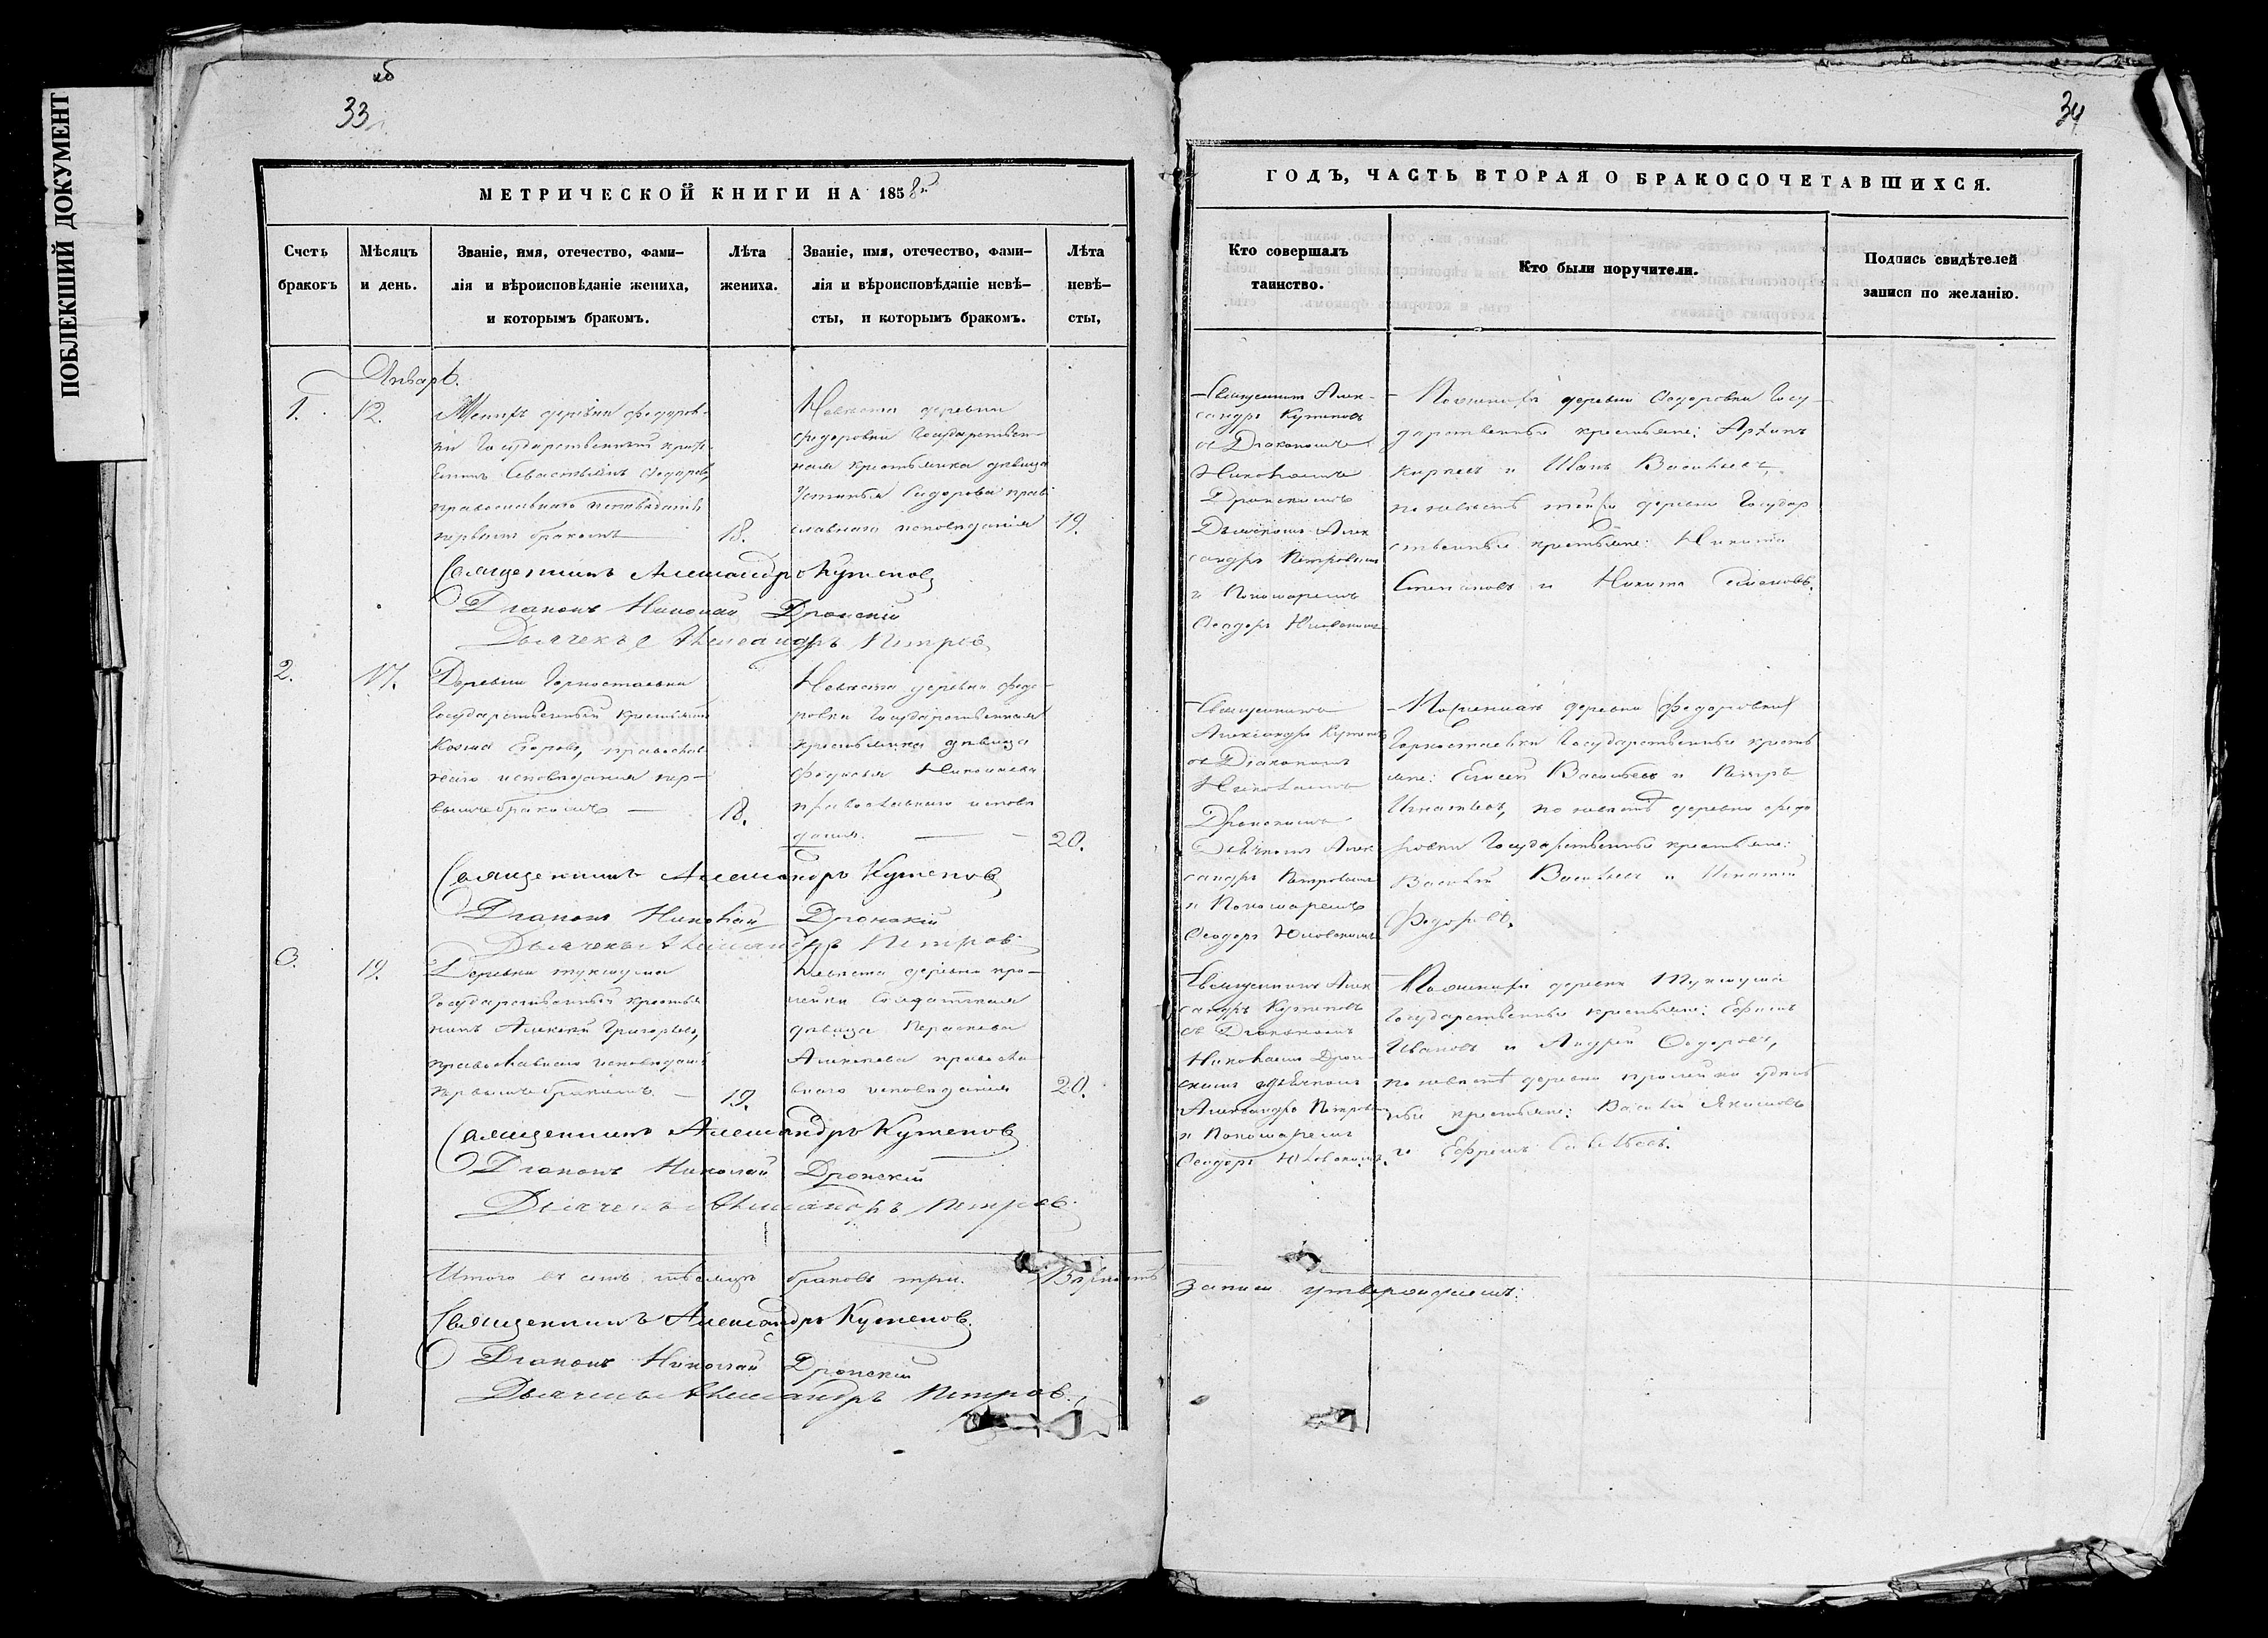 ПОБЛЕКШИЙ ДОКУМЕНТ
33
34
МЕТРИЧЕСКОЙ КНИГИ НА 1858й
Счетъ браковъ
Мѣсяцъ и день.
Званіе, имя, отечество, фами-
лія и вѣроисповѣданіе жениха,
и которымъ бракомъ.
Лѣта
жениха.
Званіе, имя, отечество, фами-
лія и вѣроисповѣданіе невѣ-
сты, и которымъ бракомъ.
Лѣта
невѣ-
сты,
Январь.
1.
12.
Женихъ деревни Федоров-
ки Государственный крест
Севастьянъ Ѳедоровъ,
православнаго исповѣданія
первымъ бракомъ
18.
Невѣста деревни
Федоровки Государствен-
ная крестьянка дѣвица
Устинья Сидорова право
славнаго исповѣданія
19.
Священникъ Александръ Кутеповъ
Діаконъ Николай Дронскій
Дьячекъ Александръ Петровъ
2.
17.
Деревни Горностаевки
Государственный крестьянинъ
Козма Егоровъ, православ
наго исповѣданія пер-
вымъ бракомъ
18.
Невѣста деревни Федо-
ровки Государственная
крестьянка дѣвица
Федосья Николаева
православнаго исповѣ
данія.
20.
Священникъ Александръ Кутеповъ
Діаконъ Николай Дронскій
Дьячекъ Александръ Петровъ
3.
19.
Деревни Тукшума
Государственный крестья
нинъ Алексѣй Григорьевъ,
православнаго исповѣданія
первымъ бракомъ
19.
Невѣста деревни про-
лейки Солдатская
дѣвица Параскева
Алексѣева правосла-
внаго исповѣданія
20.
Священникъ Александръ Кутеповъ
Діаконъ Николай Дронскій
Дьячекъ Александръ Петровъ
Итого въ семъ мѣсяцѣ браковъ три. Вѣрность
Священникъ Александръ Кутеповъ.
Діаконъ Николай Дронскій
Дьячекъ Александръ Петровъ.
ГОДЪ, ЧАСТЬ ВТОРАЯ О БРАКОСОЧЕТАВШИХСЯ.
Кто совершалъ
таинство.
Кто были поручители.
Подпись свидѣтелей
записи по желанію.
Священникъ Алек-
сандръ Кутеповъ
съ Діакономъ
Николаемъ
Дронскимъ
Дьячкомъ Алек
сандръ Петровымъ
и Пономаремъ
Ѳеодоръ
По женихѣ деревни Ѳедоровки Госу-
дарственные крестьяне: Архипъ
и Иванъ Васильевъ,
по невѣстѣ той же деревни Государ
ственные крестьяне: Никита
Степановъ и Никита
Священникъ
Александръ Кутеповъ
съ Діакономъ
Николаемъ
Дронскимъ
Дьячкомъ Алек
сандръ Петровымъ
и Пономаремъ
Ѳеодоръ
По женихѣ деревни (Федоровки)
Горностаевки Государственные кресть
яне: Елисей Васильевъ и Петръ
Игнатьевъ, по невѣстѣ деревни Федо
ровки Государственные крестьяне:
Василій Васильевъ и Игнатій
Федоровъ.
Священникъ Алек
сандръ Кутеповъ
съ Діакономъ
Николаемъ Дрон-
скимъ Дьячкомъ
Александръ Петровымъ
и Пономаремъ
Ѳеодоръ
По женихѣ деревни Тукшума
Государственные крестьяне: Ефимъ
Ивановъ и Андрей Ѳедоровъ,
по невѣстѣ деревни пролейки удѣль
ные крестьяне: Василій Якимовъ
и Ефремъ Савельевъ.
записи утверждаемъ: